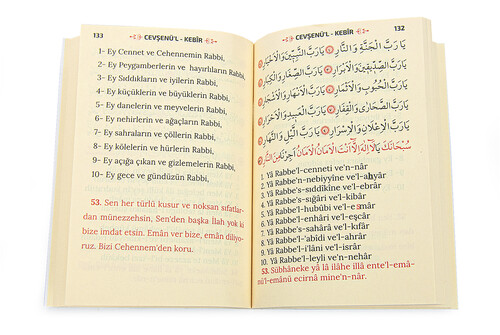 CEVŞENÜ'L - KEBÎR 132
يَا رَبَّ الْجَنَّةِ وَالنَّارِ ۞ يَا رَبَّ النَّبِيِّينَ وَالْأَخْيَارِ
يَا رَبَّ الصِّدِّيقِينَ وَالْأَبْرَارِ ۞ يَا رَبَّ الصِّغَارِ وَالْكِبَارِ
يَا رَبَّ الْحُبُوبِ وَالْأَثْمَارِ ۞ يَا رَبَّ الْأَنْهَارِ وَالْأَشْجَارِ
يَا رَبَّ الصَّحَارَى وَالْقِفَارِ ۞ يَا رَبَّ الْعَبِيدِ وَالْأَحْرَارِ
يَا رَبَّ الْإِعْلَانِ وَالْإِسْرَارِ ۞ يَا رَبَّ اللَّيْلِ وَالنَّهَارِ
سُبْحَانَكَ يَا لَا إِلٰهَ إِلَّا أَنْتَ الْأَمَانُ الْأَمَانُ أَجِرْنَا مِنَ النَّارِ
1. Yâ Rabbe'l-cenneti ve'n-nâr
2. Yâ Rabbe'n-nebiyyîne ve'l-ahyâr
3. Yâ Rabbe's-sıddîkîne ve'l-ebrâr
4. Yâ Rabbe's-sığâri ve'l-kibâr
5. Yâ Rabbe'l-hubûbi ve'l-esmâr
6. Yâ Rabbe'l-enhâri ve'l-eşcâr
7. Yâ Rabbe's-sahârâ ve'l-kıfâr
8. Yâ Rabbe'l-'abîdi ve'l-ahrâr
9. Yâ Rabbe'l-i'lâni ve'l-isrâr
10. Yâ Rabbe'l-leyli ve'n-nehâr
53. Sübhâneke yâ lâ ilâhe illâ ente'l-emâ-
nü'l-emânü ecirnâ mine'n-nâr.
133 CEVŞENÜ'L - KEBÎR
1- Ey Cennet ve Cehennemin Rabbi,
2- Ey Peygamberlerin ve hayırlıların Rabbi,
3- Ey Sıddıkların ve iyilerin Rabbi,
4- Ey küçüklerin ve büyüklerin Rabbi,
5- Ey danelerin ve meyvelerin Rabbi,
6- Ey nehirlerin ve ağaçların Rabbi,
7- Ey sahraların ve çöllerin Rabbi,
8- Ey kölelerin ve hürlerin Rabbi,
9- Ey açığa çıkan ve gizlemelerin Rabbi,
10- Ey gece ve gündüzün Rabbi,
53. Sen her türlü kusur ve noksan sıfatlar-
dan münezzehsin, Sen'den başka İlah yok ki
bize imdat etsin. Emân ver bize, emân diliyo-
ruz. Bizi Cehennem'den koru.